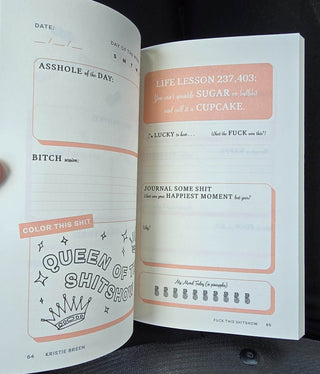 DATE:
DAY OF THE
S M T W
ASSHOLE of the DAY:
BITCH session:
COLOR THIS SHIT
QUEEN OF THE
SHITSHOW
64 KRISTIE BREEN
LIFE LESSON 237,403:
You can't sprinkle SUGAR on bullshit
and call it a CUPCAKE.
I'm LUCKY to have...
What the FUCK was this?!
JOURNAL SOME SHIT
What are your HAPPIEST MOMENT
Why?
My Mood Today (in pineapples)
FUCK THIS SHITSHOW 65